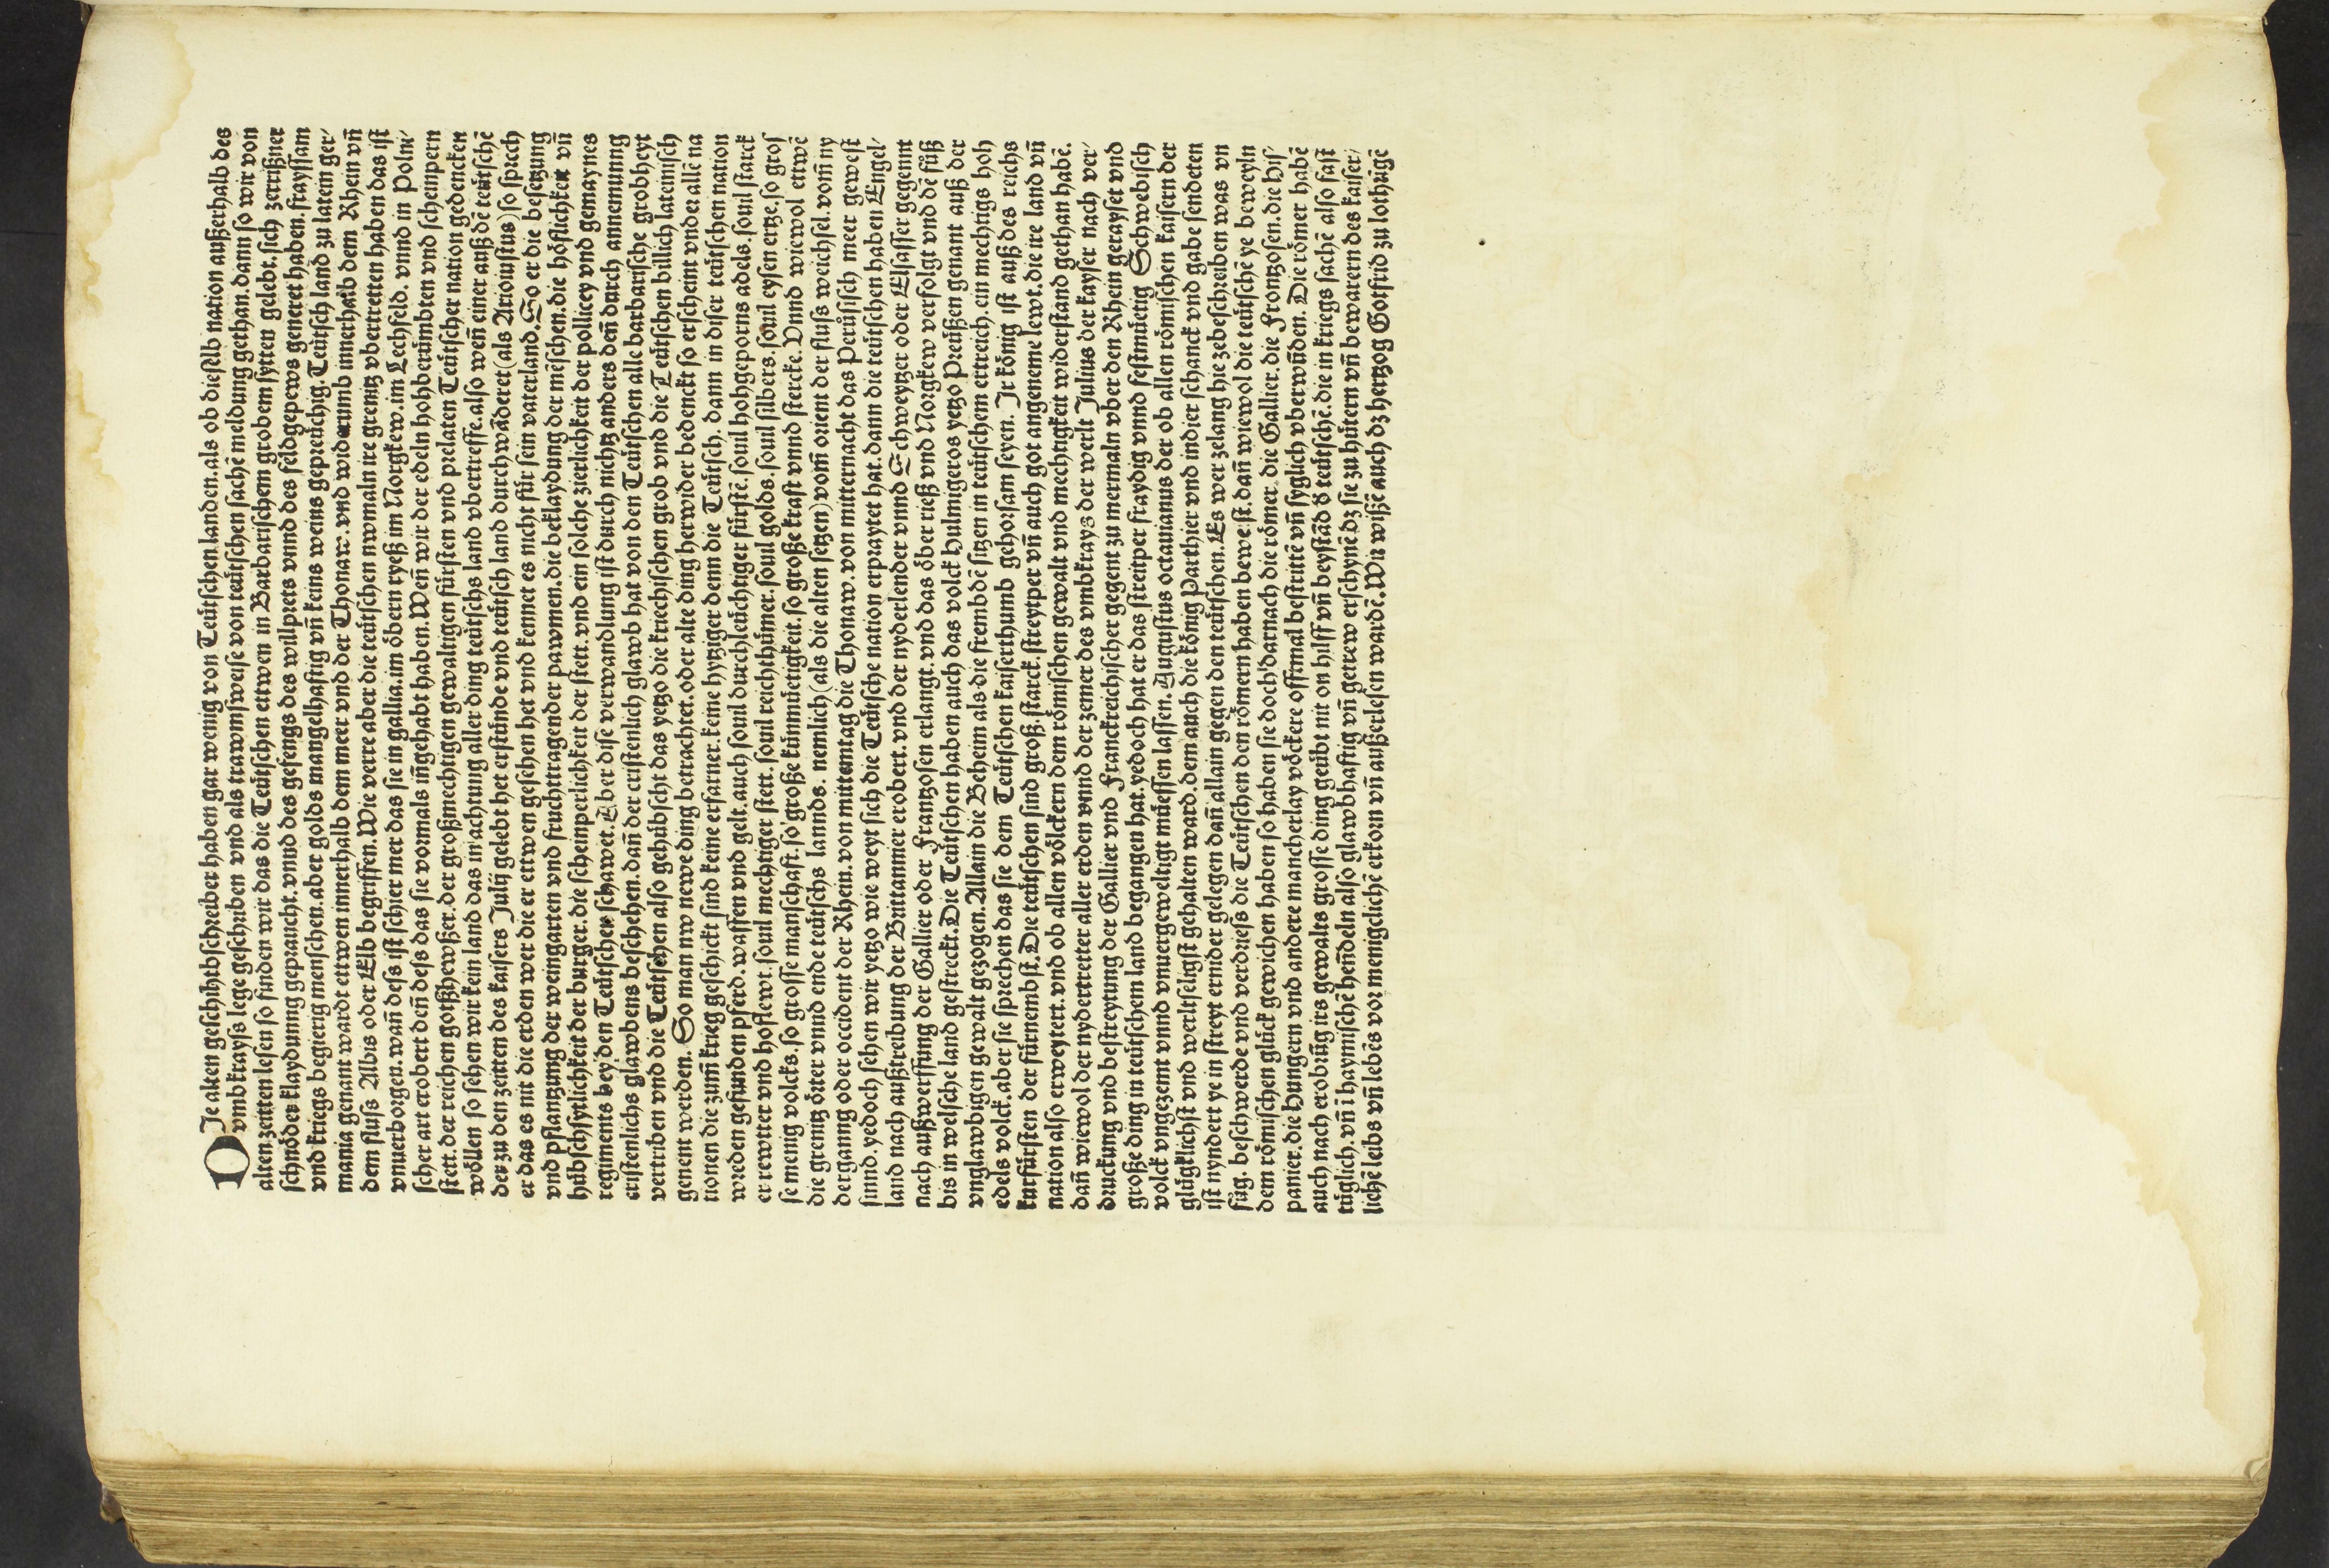 DIe alten geschihtbschreiber haben gar wenig von Teütschen landen. als ob dieselb nation außerhalb des
vmbkrayss lege geschriben vnd als trawmsweise von teütschen sachē meldung gethan. dann so wir von
alten zeitten lesen so finden wir das die Teütschen ettwen in Barbarischem grobem sytten gelebt. sich zerrißner
schnöder klaydunng gepraucht. vnnd des gefengs des willprets vnnd des feldgepews generet haben. frayssam
vnd kriegs begierig menschen. aber golds mangelhaftig vn̄ keins weins gepreüchig. Teütsch land zu latein ger⸗
mania genant wardt ettwen innerhalb dem meer vnd der Thonaw. vnd widerumb innerhalb dem Rhein vn̄
dem fluss Albis oder Elb begriffen. Wie verre aber die teütschen nwmaln ire grenitz vbertretten haben das ist
vnuerborgen. wan̄ dess ist schier mer das sie in gallia. im öbern ryeß im Norgkew. im Lechfeld. vnnd in Polni⸗
scher art erobert den̄ dess das sie vormals in̄gehabt haben. Wen̄ wir der edeln hohberümbten vnd scheinpern
stett. der reichen gotßhewßer. der großmechtigen gewaltigen fürsten vnd prelaten Teütscher nation gedencken
wöllen so sehen wir kein land das in achtung aller ding teütschs land vbertreffe. also wen̄ einer auß dē teütschē
der zu den zeitten des kaisers Julij gelebt het erstünde vnd teütsch land durchwāderet (als Ariouistus) so sprech
er das es nit die erden wer die er ettwen gesehen het vnd kennet es nicht für sein vaterland. So er die besetzung
vnd pflantzung der weingarten vnd fruchttragender pawmen. die beklaydung der mēschen. die höflichkeit vn̄
hübschsytlichkeit der burger. die scheinperlichkeit der stett. vnd ein solche zierlichkeit der pollicey vnd gemaynes
regiments bey den Teütschen schawet. Aber dise verwandlung ist durch nichtz anders den̄ durch annemunng
cristenlichs glawbens beschehen. dan̄ der cristenlich glawb hat von den Teütschen alle barbarische grobheyt
vertriben vnd die Teütschen also gehübscht das yetzo die kriechischen grob vnd die Teütschen billich lateinisch
genent werden. So man nw newe ding betrachtet. oder alte ding herwider bedenckt so erscheint vnder alle na
tionen die zum̄ krieg geschickt sind keine erfarner. keine hytziger denn die Teütsch. dann in diser teütschen nation
wreden gefunden pferd. waffen vnd gelt. auch souil durchleüchtiger fürstē. souil hohgeporns adels. souil starck
er rewtter vnd hoflewt. souil mechtiger stett. souil reichthümer. souil golds. souil silbers. souil eysen ertze. so gros
se menig volcks. so grosse manschaft. so große künmüetigkeit. so große kraft vnnd stercke. Vnnd wiewol ettwē
die grenitz örter vnnd ende teütschs lannds. nemlich (als die alten setzen) vom̄ orient der fluss weichsel. vom̄ ny
derganng oder occident der Rhein. von mittemtag die Thonaw. von mitternacht das Perüsisch meer gewest
sinnd. yedoch sehen wir yetzo wie weyt sich die Teütsche nation erpraytet hat. dann die teütschen haben Engel⸗
land nach außtreibung der Brittanner erobert. vnd der nyderlender vnnd Schweytzer oder Elsasser gegennt
nach außwerffung der Gallier oder Frantzosen erlangt. vnd das öber rieß vnd Norgkew verfolgt vnd dē füß
bis in welsche land gestreckt. Die Teütschen haben auch das volck Hulmigeros yetzo Preüßen genant auß der
vnglawbigen gewalt gezogen. Allain die Beheim als die frembdē sitzen in teütschem ertreich. ein mechtigs hoh
edels volck. aber sie sprechen das sie dem Teütschen kaiserthumb gehorsam seyen. Ir könig ist auß des reichs
kurfürsten der fürnembst. Die teütschen sind groß. starck. streytper vn̄ auch got angeneme lewt. die ire land vn̄
nation also erweytert. vnd ob allen völckern dem römischen gewalt vnd mechtigkeit widerstand gethan habē.
dan̄ wiewol der nydertretter aller erden vnnd der zemer des vmbkrays der werlt Julius der kayser nach ver⸗
druckung vnd bestreytung der Gallier vnd Franckreichischer gegent zu mermaln vber den Rhein gerayset vnd
große ding in teütschem land begangen hat. yedoch hat er das streitper fraydig vnnd festmüetig Schwebisch
volck vngezemt vnnd vnuergeweltigt müessen lassen. Augustus octauianus der ob allen römischen kaisern der
glügklichst vnd werltseligst gehalten ward. dem auch die könig Parthier vnd indier schanck vnd gabe sendeten
ist nyndert ye in streyt ernider gelegen dan̄ allain gegen den teütschen. Es wer zelang hie zebeschreiben was vn
füg. beschwerde vnd verdriess die Teütschen den römern haben beweist. dan̄ wiewol die teütschē ye beweyln
dem römischen glück gewichen haben so haben sie doch darnach die römer. die Gallier. die Frontzosen. die His⸗
panier. die Hungern vnd andere mancherlay völckere offtmal bestritē vn̄ syglich vberwūden. Die römer habē
auch nach erobrūg irs gewalts grosse ding geübt nit on hilff vn̄ beystād d' teütschē. die in kriegs sachē also fast
tüglich. vn̄ i haymischē hen̄deln also glawbhaftig vn̄ getrew erschynē dz sie zu hütern vn̄ bewarern des kaiser⸗
lichē leibs vn̄ lebēs vor menigclichē erkorn vn̄ außerlesen wardē. Wir wißē auch dz hertzog Gotfrid zu lothūgē